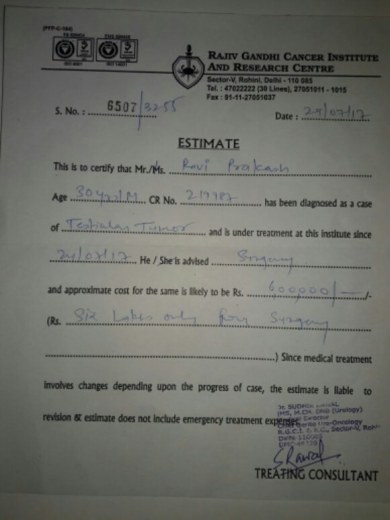 (FFP-C-164)
RAJIV GANDHI CANCER INSTITUTE
AND RESEARCH CENTRE
Sector-V, Rohini, Delhi - 110 085
Tel. : 47022222 (30 Lines), 27051011 - 1015
Fax : 91-11-27051037
S. No. : 6507/3255
Date : 24/07/17
ESTIMATE
This is to certify that Mr./Ms. Ravi Prakash
Age 30 yrs/M CR No. 219987 has been diagnosed as a case
of Testicular Tumor and is under treatment at this institute since
24/07/17 He / She is advised Surgery
and approximate cost for the same is likely to be Rs. 600000/- /-
(Rs. Six Lakhs only for Surgery
) Since medical treatment
involves changes depending upon the progress of case, the estimate is liable to
revision & estimate does not include emergency treatment expenses.
TREATING CONSULTANT